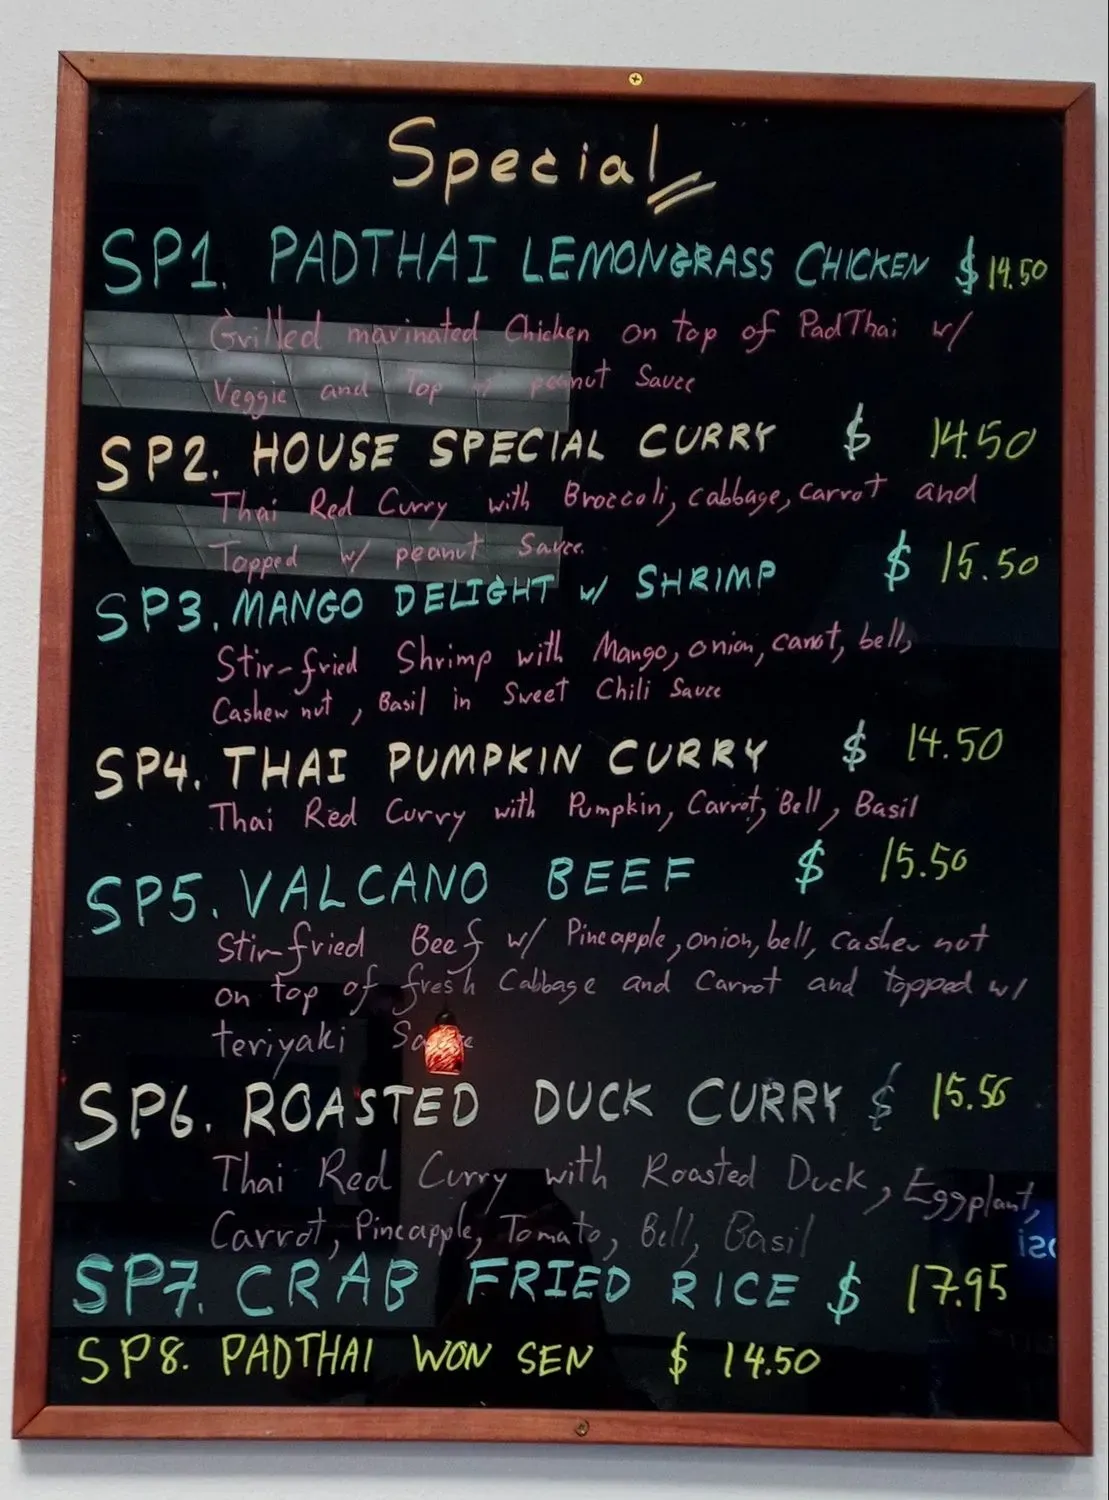 Special
SP1. PADTHAI LEMONGRASS CHICKEN $14.50
Grilled marinated Chicken on top of PadThai w/
Veggie and Top w/ peanut Sauce
SP2. HOUSE SPECIAL CURRY $ 14.50
Thai Red Curry with Broccoli, cabbage, carrot and
Topped w/ peanut Sauce.
SP3. MANGO DELIGHT w/ SHRIMP $ 15.50
Stir-fried Shrimp with Mango, onion, carrot, bell,
Cashew nut, Basil in Sweet Chili Sauce
SP4. THAI PUMPKIN CURRY $ 14.50
Thai Red Curry with Pumpkin, Carrot, Bell, Basil
SP5. VALCANO BEEF $ 15.50
Stir-fried Beef w/ Pineapple, onion, bell, cashew nut
on top of fresh Cabbage and Carrot and topped w/
teriyaki Sauce
SP6. ROASTED DUCK CURRY $ 15.50
Thai Red Curry with Roasted Duck, Eggplant,
Carrot, Pineapple, Tomato, Bell, Basil
SP7. CRAB FRIED RICE $ 17.95
SP8. PADTHAI WON SEN $ 14.50